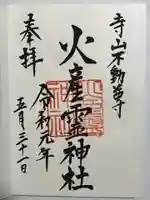 寺山不動尊
奉拝
火産霊神社
令和元年
五月三十一日